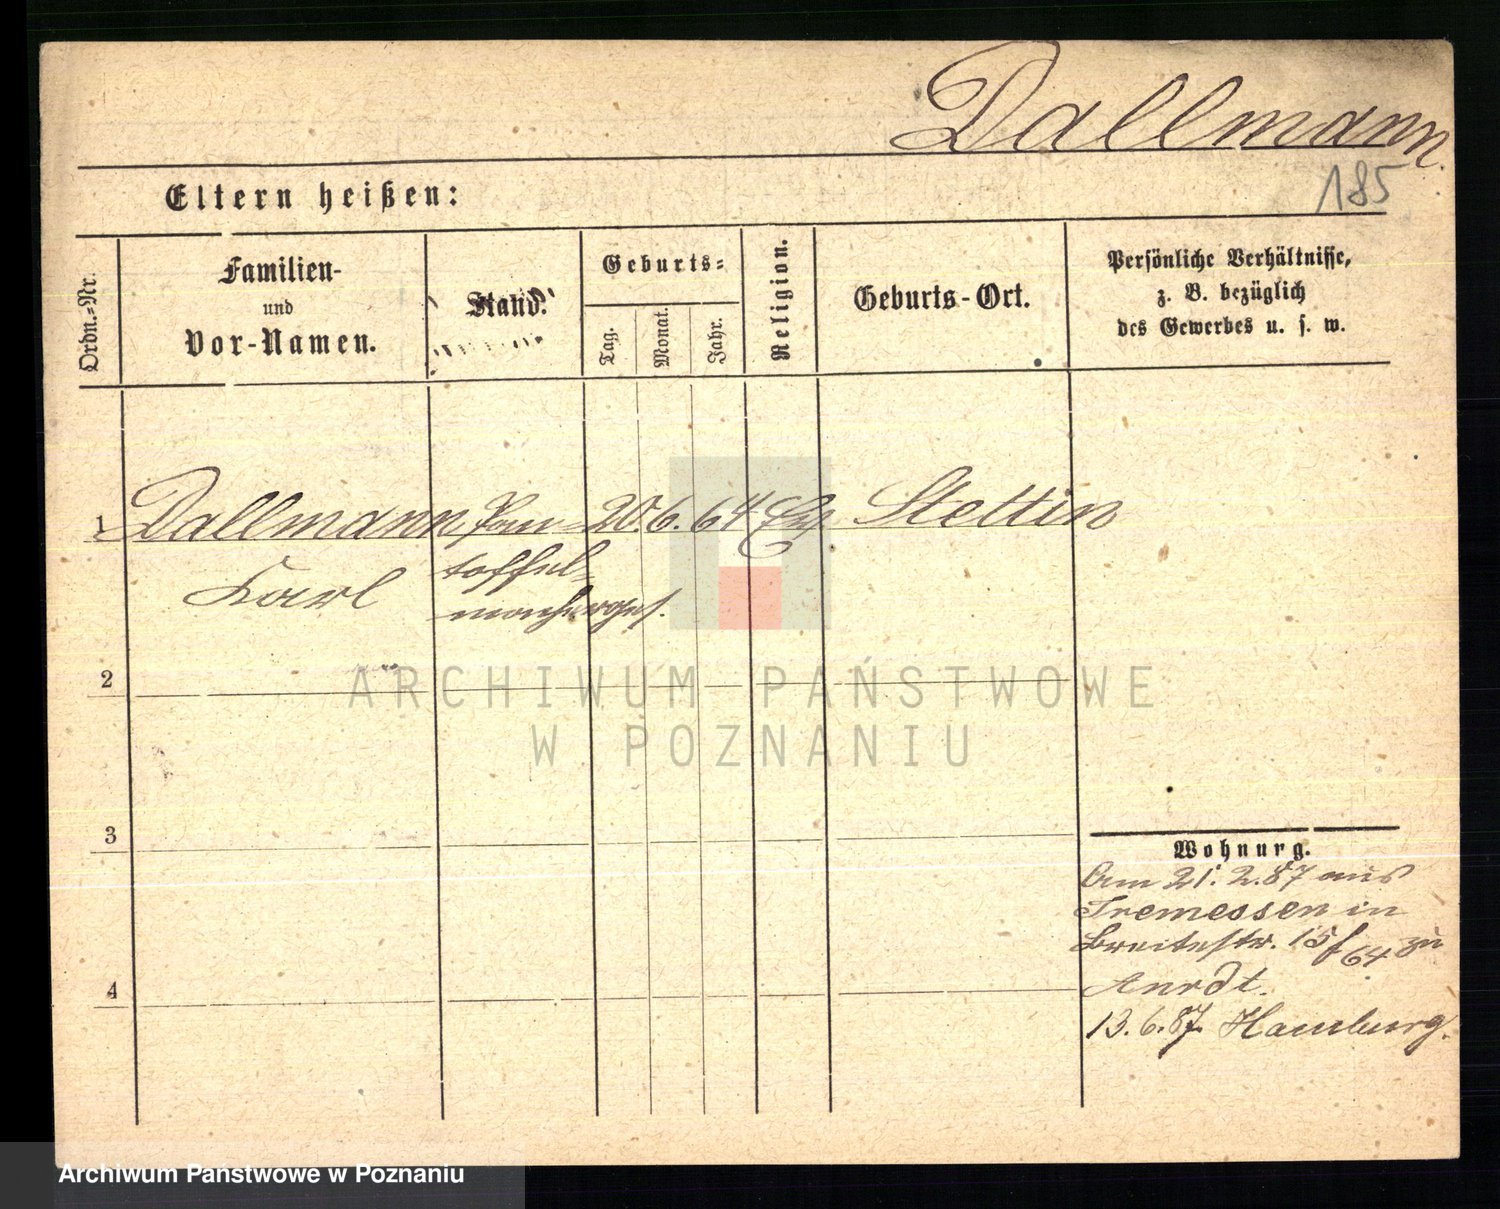 Dallmann
185
Eltern heißen:
Ordn.-Nr.
Familien-
und
Vor-Namen.
Stand.
Geburts-
Tag.
Monat.
Jahr.
Religion.
Geburts-Ort.
Persönliche Verhältnisse,
z. B. bezüglich
des Gewerbes u. s. w.
1 Dallmann Pan- 20. 6. 64 Stettin
Karl toffel-
2
ARCHIWUM PAŃSTWOWE
W POZNANIU
3
Wohnung.
Am 21. 2. 87 aus
Tremessen in
Breitestr. 15f 64 zu
Anrdt.
4
13. 6. 87. Hamburg.
Archiwum Państwowe w Poznaniu